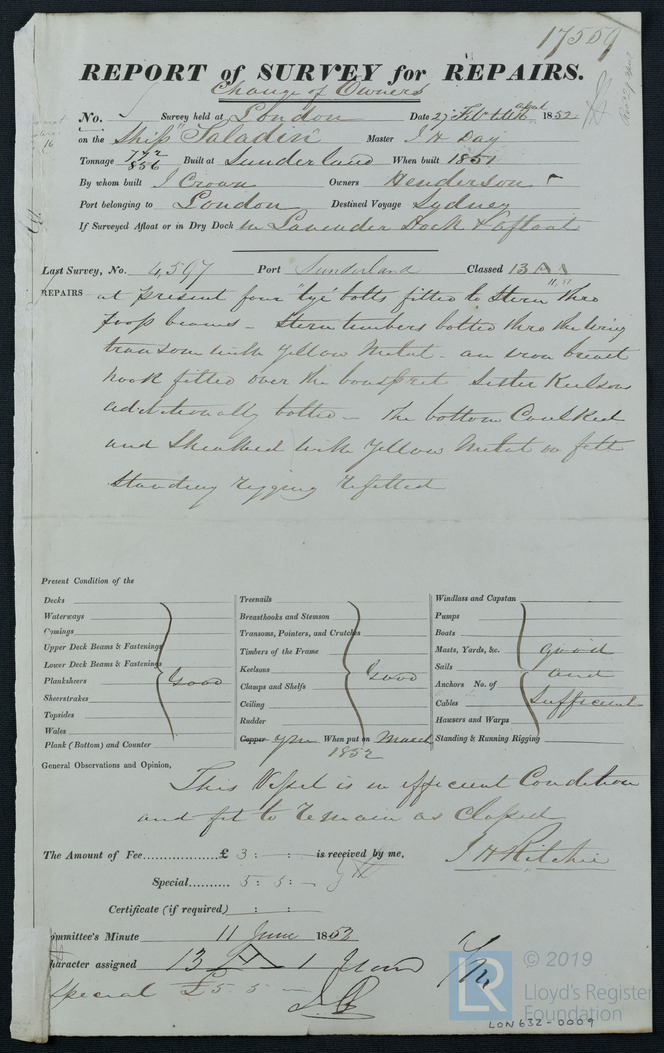 17559
REPORT of SURVEY for REPAIRS.
Change of Owners
No. Survey held at London Date 27 Feb 1852
on the Ship "Saladin" Master J H Day
Tonnage 772 856 Built at Sunderland When built 1851
By whom built J Crown Owners Henderson
Port belonging to London Destined Voyage Sydney
If Surveyed Afloat or in Dry Dock in Lavender Dock & afloat
Last Survey, No. 4,597 Port Sunderland Classed 13 A1
11,51
REPAIRS at present four "eye" bolts fitted to Stern thro
poop beams - Stern timbers bolted thro the wing
transom with Yellow Metal - an iron breast
hook fitted over the bowsprit Sister Keelson
additionally bolted - the bottom Caulked
and Sheathed with Yellow Metal on felt
Standing rigging refitted
Present Condition of the
Decks
Waterways
Comings
Upper Deck Beams & Fastenings
Lower Deck Beams & Fastenings
Planksheers Good
Sheerstrakes
Topsides
Wales
Plank (Bottom) and Counter
Treenails
Breasthooks and Stemson
Transoms, Pointers, and Crutches
Timbers of the Frame
Keelsons Good
Clamps and Shelfs
Ceiling
Rudder
Copper YM When put on March
1852
Windlass and Capstan
Pumps
Boats
Masts, Yards, &c. good
Sails and
Anchors No. of
Cables Sufficient
Hausers and Warps
Standing & Running Rigging
General Observations and Opinion,
This Vessel is in efficient Condition
and fit to remain as Classed
The Amount of Fee £ 3 : - : - is received by me, J H Ritchie
Special 5 : 5 : -
Certificate (if required) : :
ommittee's Minute 11 June 1852
haracter assigned 13 A 1
Special £5 5 -
© 2019
LR
Lloyd's Register
Foundation
LON632-0009